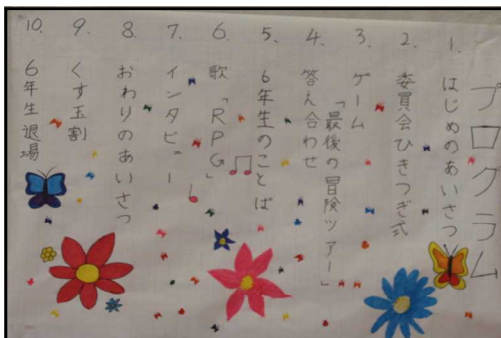 プログラム
1. はじめのあいさつ
2. 委員会ひきつぎ式
3. ゲーム
「最後の冒険ツアー」
4. 答え合わせ
5. 6年生のことば
6. 歌「RPG」
7. インタビュー
8. おわりのあいさつ
9. くす玉割
10. 6年生退場